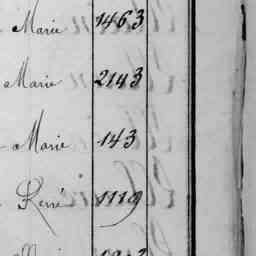 Marie 1463
Marie 2143
Marie 143
René 1119